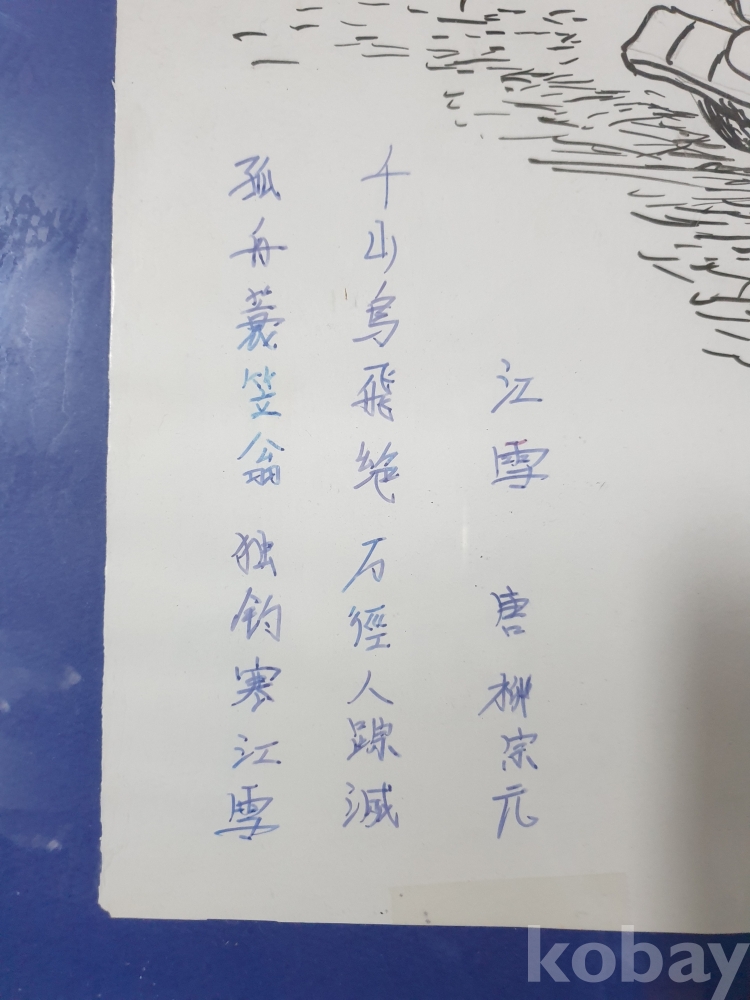 江雪 唐 柳宗元
千山鸟飛绝 万徑人踪滅
孤舟蓑笠翁 独钓寒江雪
kobay